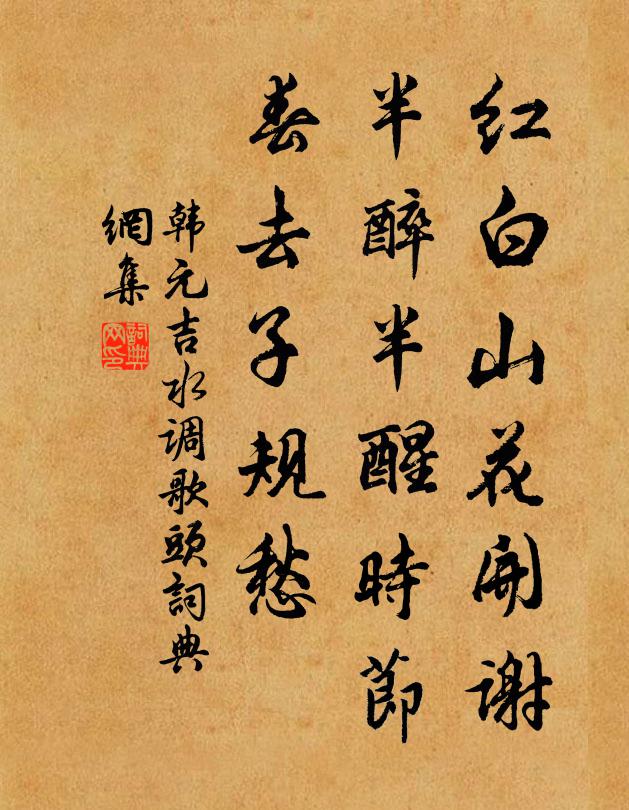 红白山花開謝
半醉半醒時節
春去子規愁
韩元吉水调歌頭詞典
網集
詞典
网印